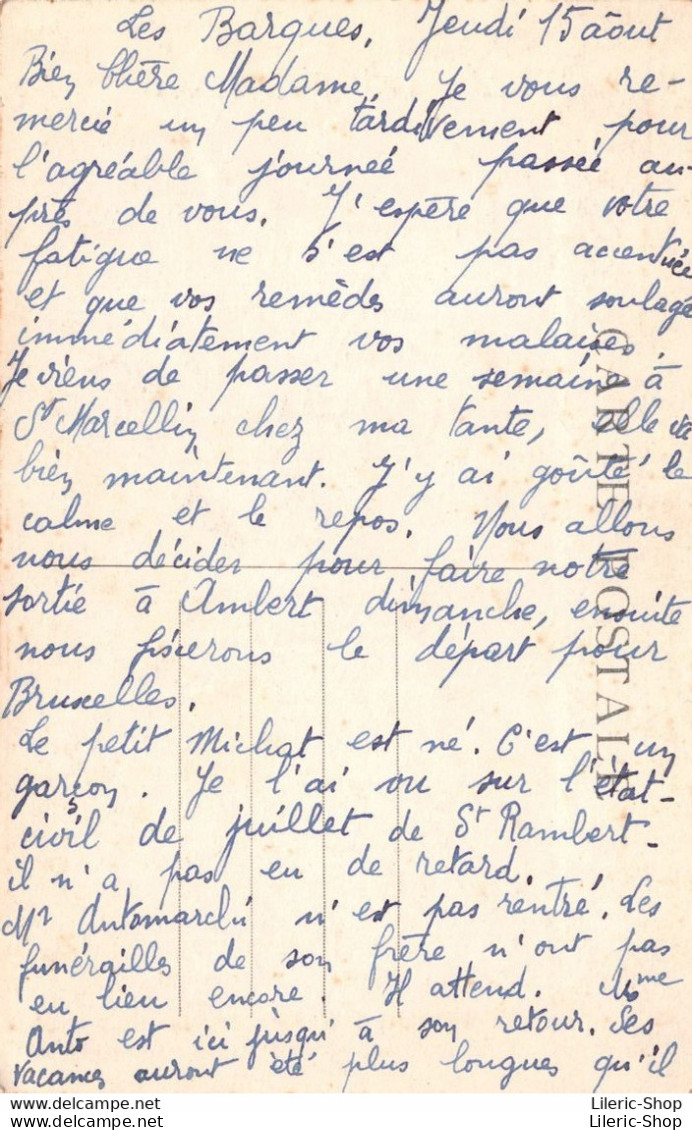 Les Barques, Jeudi 15 août
Bien Chère Madame, Je vous re-
mercie un peu tardivement pour
l'agréable journeé passée au-
près de vous. J'espère que votre
fatigue ne s'est pas accentuée
et que vos remèdes auront soulagé
immédiatement vos malaises.
Je viens de passer une semaine à
St Marcellin chez ma tante, elle va
bien maintenant. J'y ai goûté le
calme et le repos. Nous allons
nous décider pour faire notre
sortie à Ambert dimanche, ensuite
nous fixerons le départ pour
Bruxelles.
Le petit Michat est né. C'est un
garçon. Je l'ai vu sur l'état-
civil de juillet de St Rambert-
il n'a pas eu de retard.
Mr Antomarchi n'est pas rentré. Les
funérailles de son frère n'ont pas
eu lieu encore. Il attend. Mme
Anto est ici jusqu'à son retour. Ses
vacances auront été plus longues qu'il
CARTE POSTALE
Lileric-Shop
Lileric-Shop